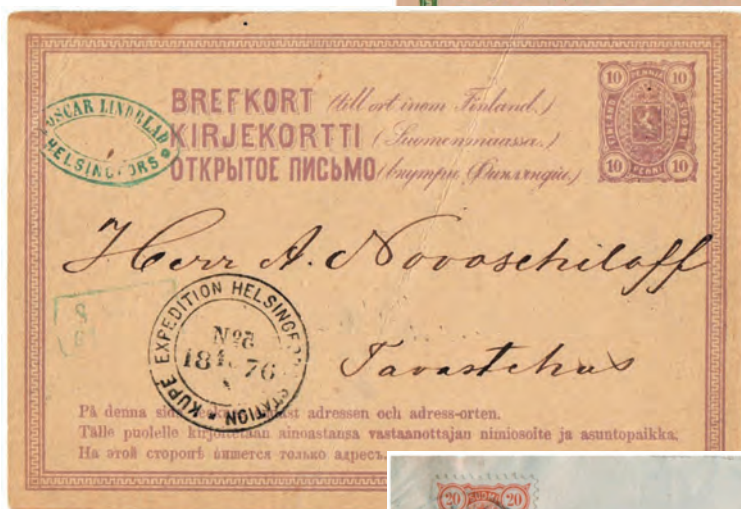 OSCAR LINDBLAD
HELSINGFORS
BREFKORT (till ort inom Finland.)
KIRJEKORTTI (Suomenmaassa.)
ОТКРЫТОЕ ПИСЬМО (внутри Финляндiи)
10 PENNIA 10
FINLAND SUOMI
10 PENNI 10
Herr A. Novoschiloff
Tavastehus
KUPÉ EXPEDITION HELSINGFORS STATION
No 5
18 76
På denna sida adressen och adress-orten.
Tälle puolelle kirjoitetaan ainoastansa vastaanottajan nimiosoite ja asuntopaikka.
На этой сторонѣ пишется только адресъ.
20 SUOMI 20